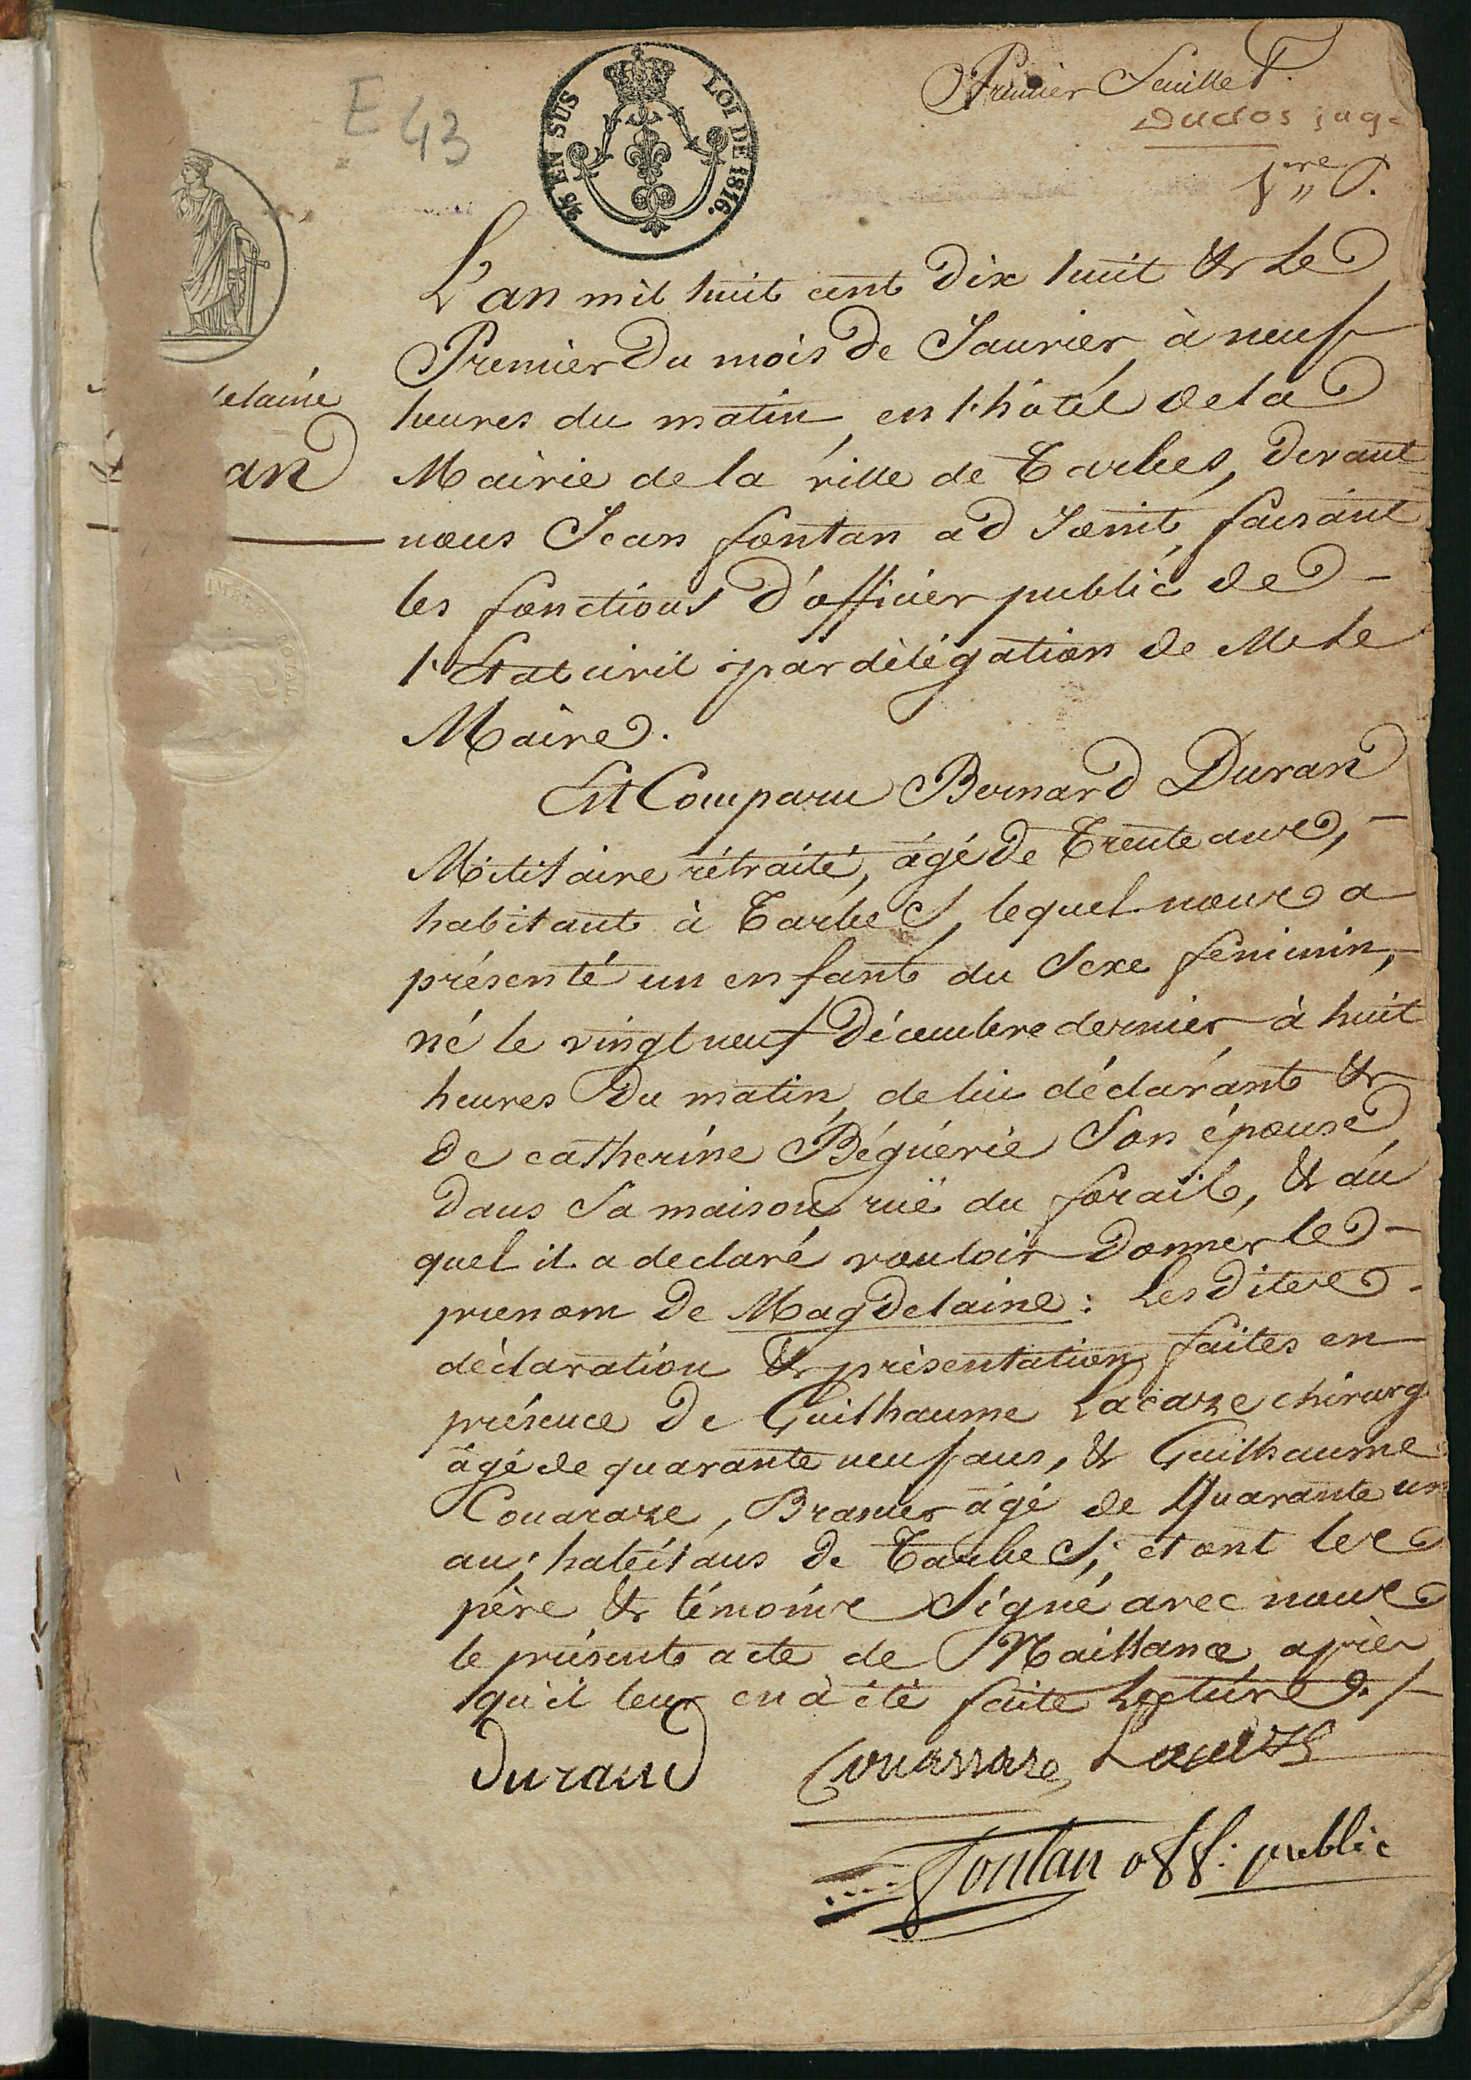 Premier feuillet.
Duclos juge
E 43
2/5 EN SUS LOI DE 1816.
1re
L'an mil huit cent dix huit & le
Premier du mois de Janvier, à neuf
heures du matin, en l'hôtel de la
delaine
an
Mairie de la ville de Tarbes, devant
nous Jean fontan adjoint, faisant
les fonctions d'officier public de
l'Etat civil par délégation de M. le
Maire.
Est Comparu Bernard Duran
Militaire rétraité, âgé de Trente ans,
habitant à Tarbes, lequel nous a
présenté un enfant du Sexe féminin,
né le vingt neuf décembre dernier à huit
heures du matin, de lui déclarant &
de catherine Béguérie son épouse,
dans sa maison, ruë du forail, & au
quel il a declaré vouloir donner le
prenom de Magdelaine : Lesdites
déclaration & présentation faites en
présence de Guilhaume Lacaze chirurg
âgé de quarante neuf ans, & Guilhaume
Couaraze, Brasier âgé de Quarante un
an, habitans de Tarbes; et ont les
père & témoins signé avec nous
le présent acte de Naissance, après
qu'il leur en à été faite Lecture ./.
Durand Couarraze Lacaze
Fontan off. public